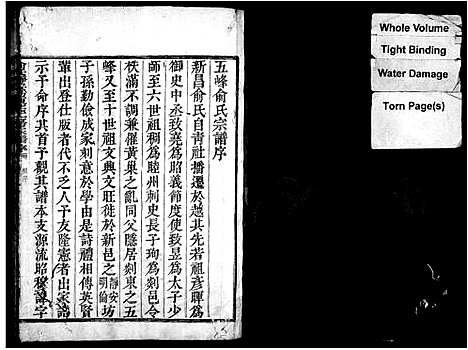 五峰俞氏宗譜序
新昌俞氏自青社播遷於越其先若祖彥暉為
御史中丞致堯為昭義節度使致昱為太子少
師至六世祖稠為睦州刺史長子珣為剡邑令
秩滿不調兼催黃巢之亂同父隱居剡東之五
峰又至十世祖文興文旺徙於新邑之靜安坊
明倫
子孫勤儉成家刻意於學由是詩禮相傳英賢
輩出登仕版者代不乏人予友隆憲者出家譜
示予命序其首予觀其譜本支源流昭穆諱字
Whole Volume
Tight Binding
Water Damage
Torn Page(s)